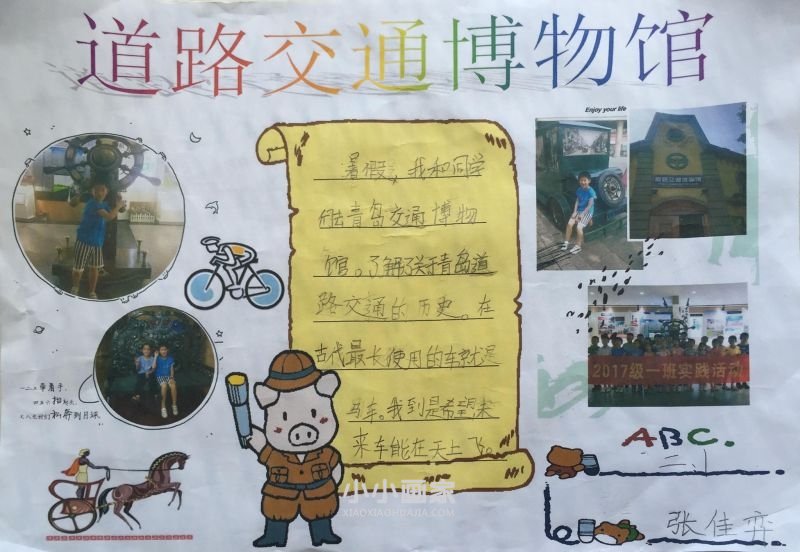 道路交通博物馆
Enjoy your life
暑假，我和同学
们去青岛交通博物
馆。了解了关于青岛道
路交通的历史。在
古代最长使用的车就是
马车。我到是希望未
来车能在天上飞。
2017级一班实践活动
一二三带着手，
四五六抬起头，
ABC.
二、1
张佳弈
小小画家
XIAOXIAOHUAJIA.COM